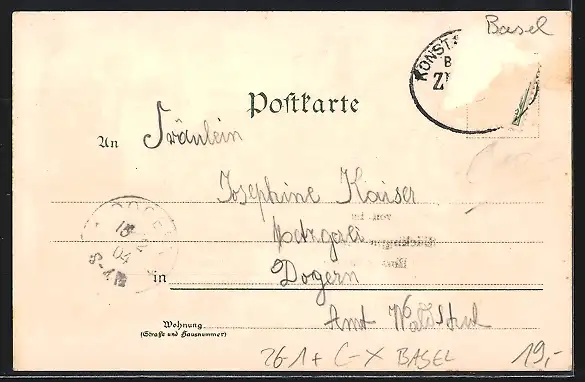 Basel
KONST
B
Z
Postkarte
An Fräulein
Josephine Kaiser
Metzgerei
in Dogern
Amt Waldshut
DOGERN
15 2
04
8-9N
Wohnung
(Straße und Hausnummer)
261+ C-X BASEL
19,-